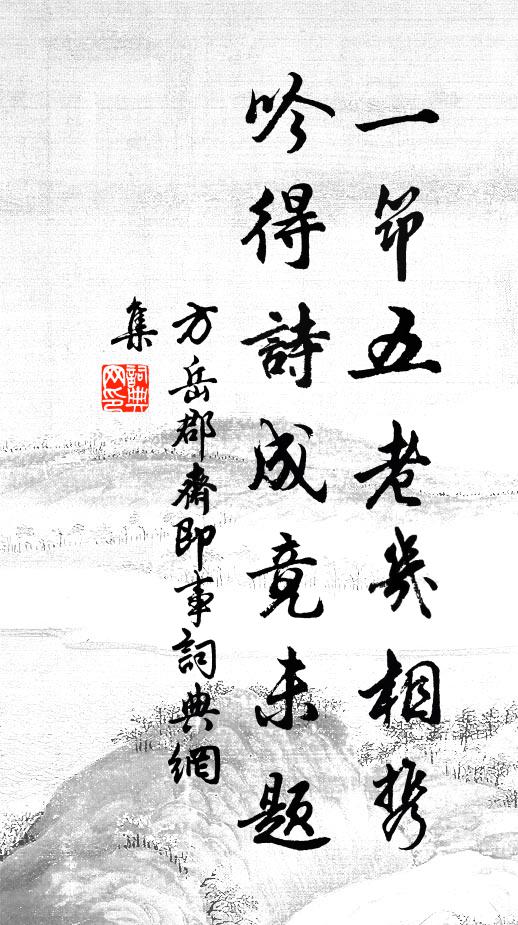 一筇五老幾相携
吟得詩成竟未題
方岳郡齋即事詞典網
集
詞典
网印